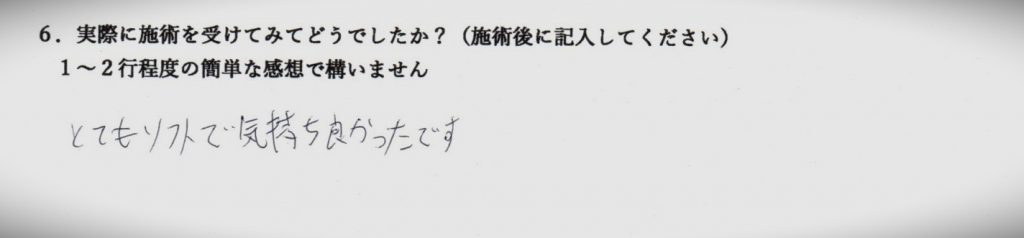 ６．実際に施術を受けてみてどうでしたか？（施術後に記入してください）
１～２行程度の簡単な感想で構いません
とてもソフトで気持ち良かったです